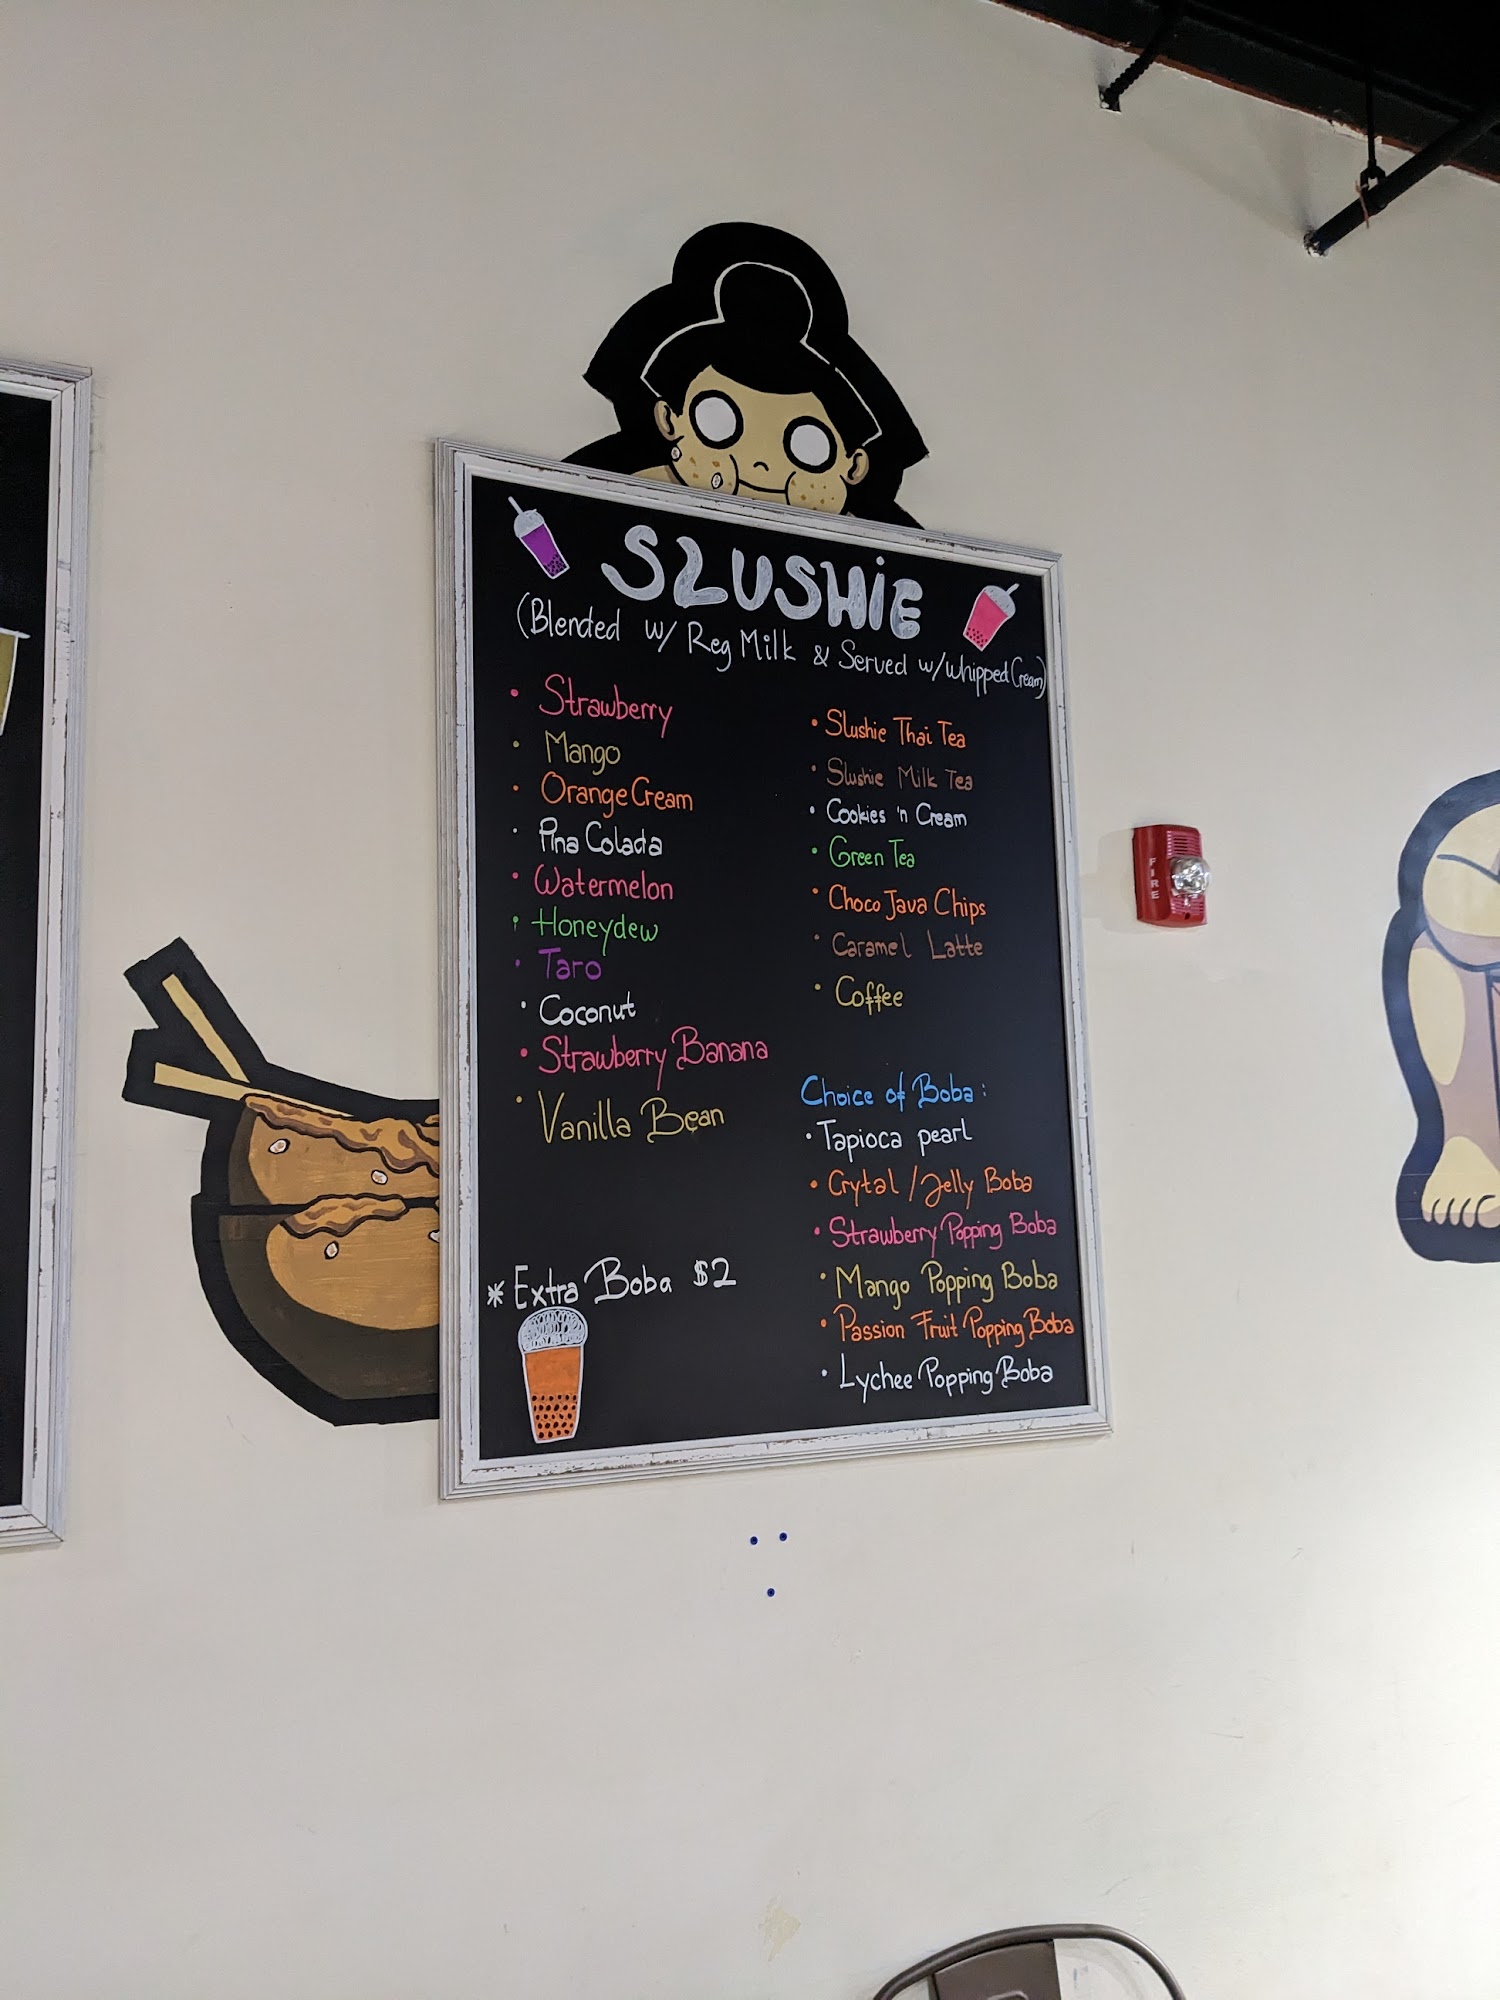 SLUSHiE
(Blended w/ Reg Milk & Served w/Whipped Cream)
• Strawberry
• Mango
• Orange Cream
• Pina Colada
• Watermelon
• Honeydew
• Taro
• Coconut
• Strawberry Banana
• Vanilla Bean
* Extra Boba $2
• Slushie Thai Tea
• Slushie Milk Tea
• Cookies 'n Cream
• Green Tea
• Choco Java Chips
• Caramel Latte
• Coffee
Choice of Boba:
• Tapioca pearl
• Crytal / Jelly Boba
• Strawberry Popping Boba
• Mango Popping Boba
• Passion Fruit Popping Boba
• Lychee Popping Boba
FIRE